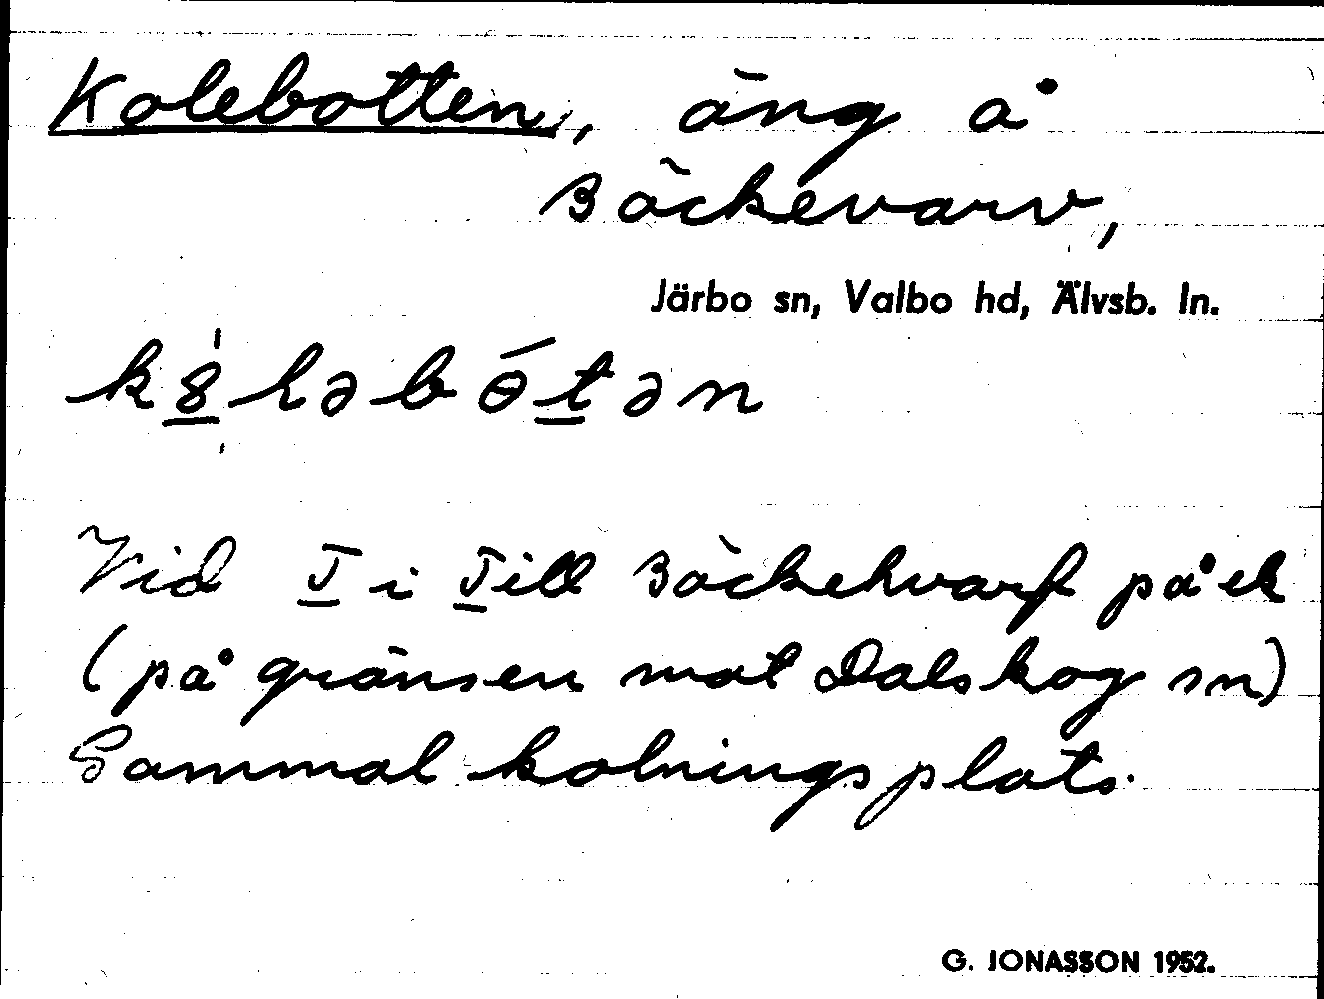 Kolebotten, äng å
Bäckevarv,
Järbo sn, Valbo hd, Älvsb. ln.
k8ləbɵ́tən
Vid I i Till Bäckehvarf på ek
(på gränsen mot Dalskog sn)
Gammal kolningsplats.
G. JONASSON 1952.